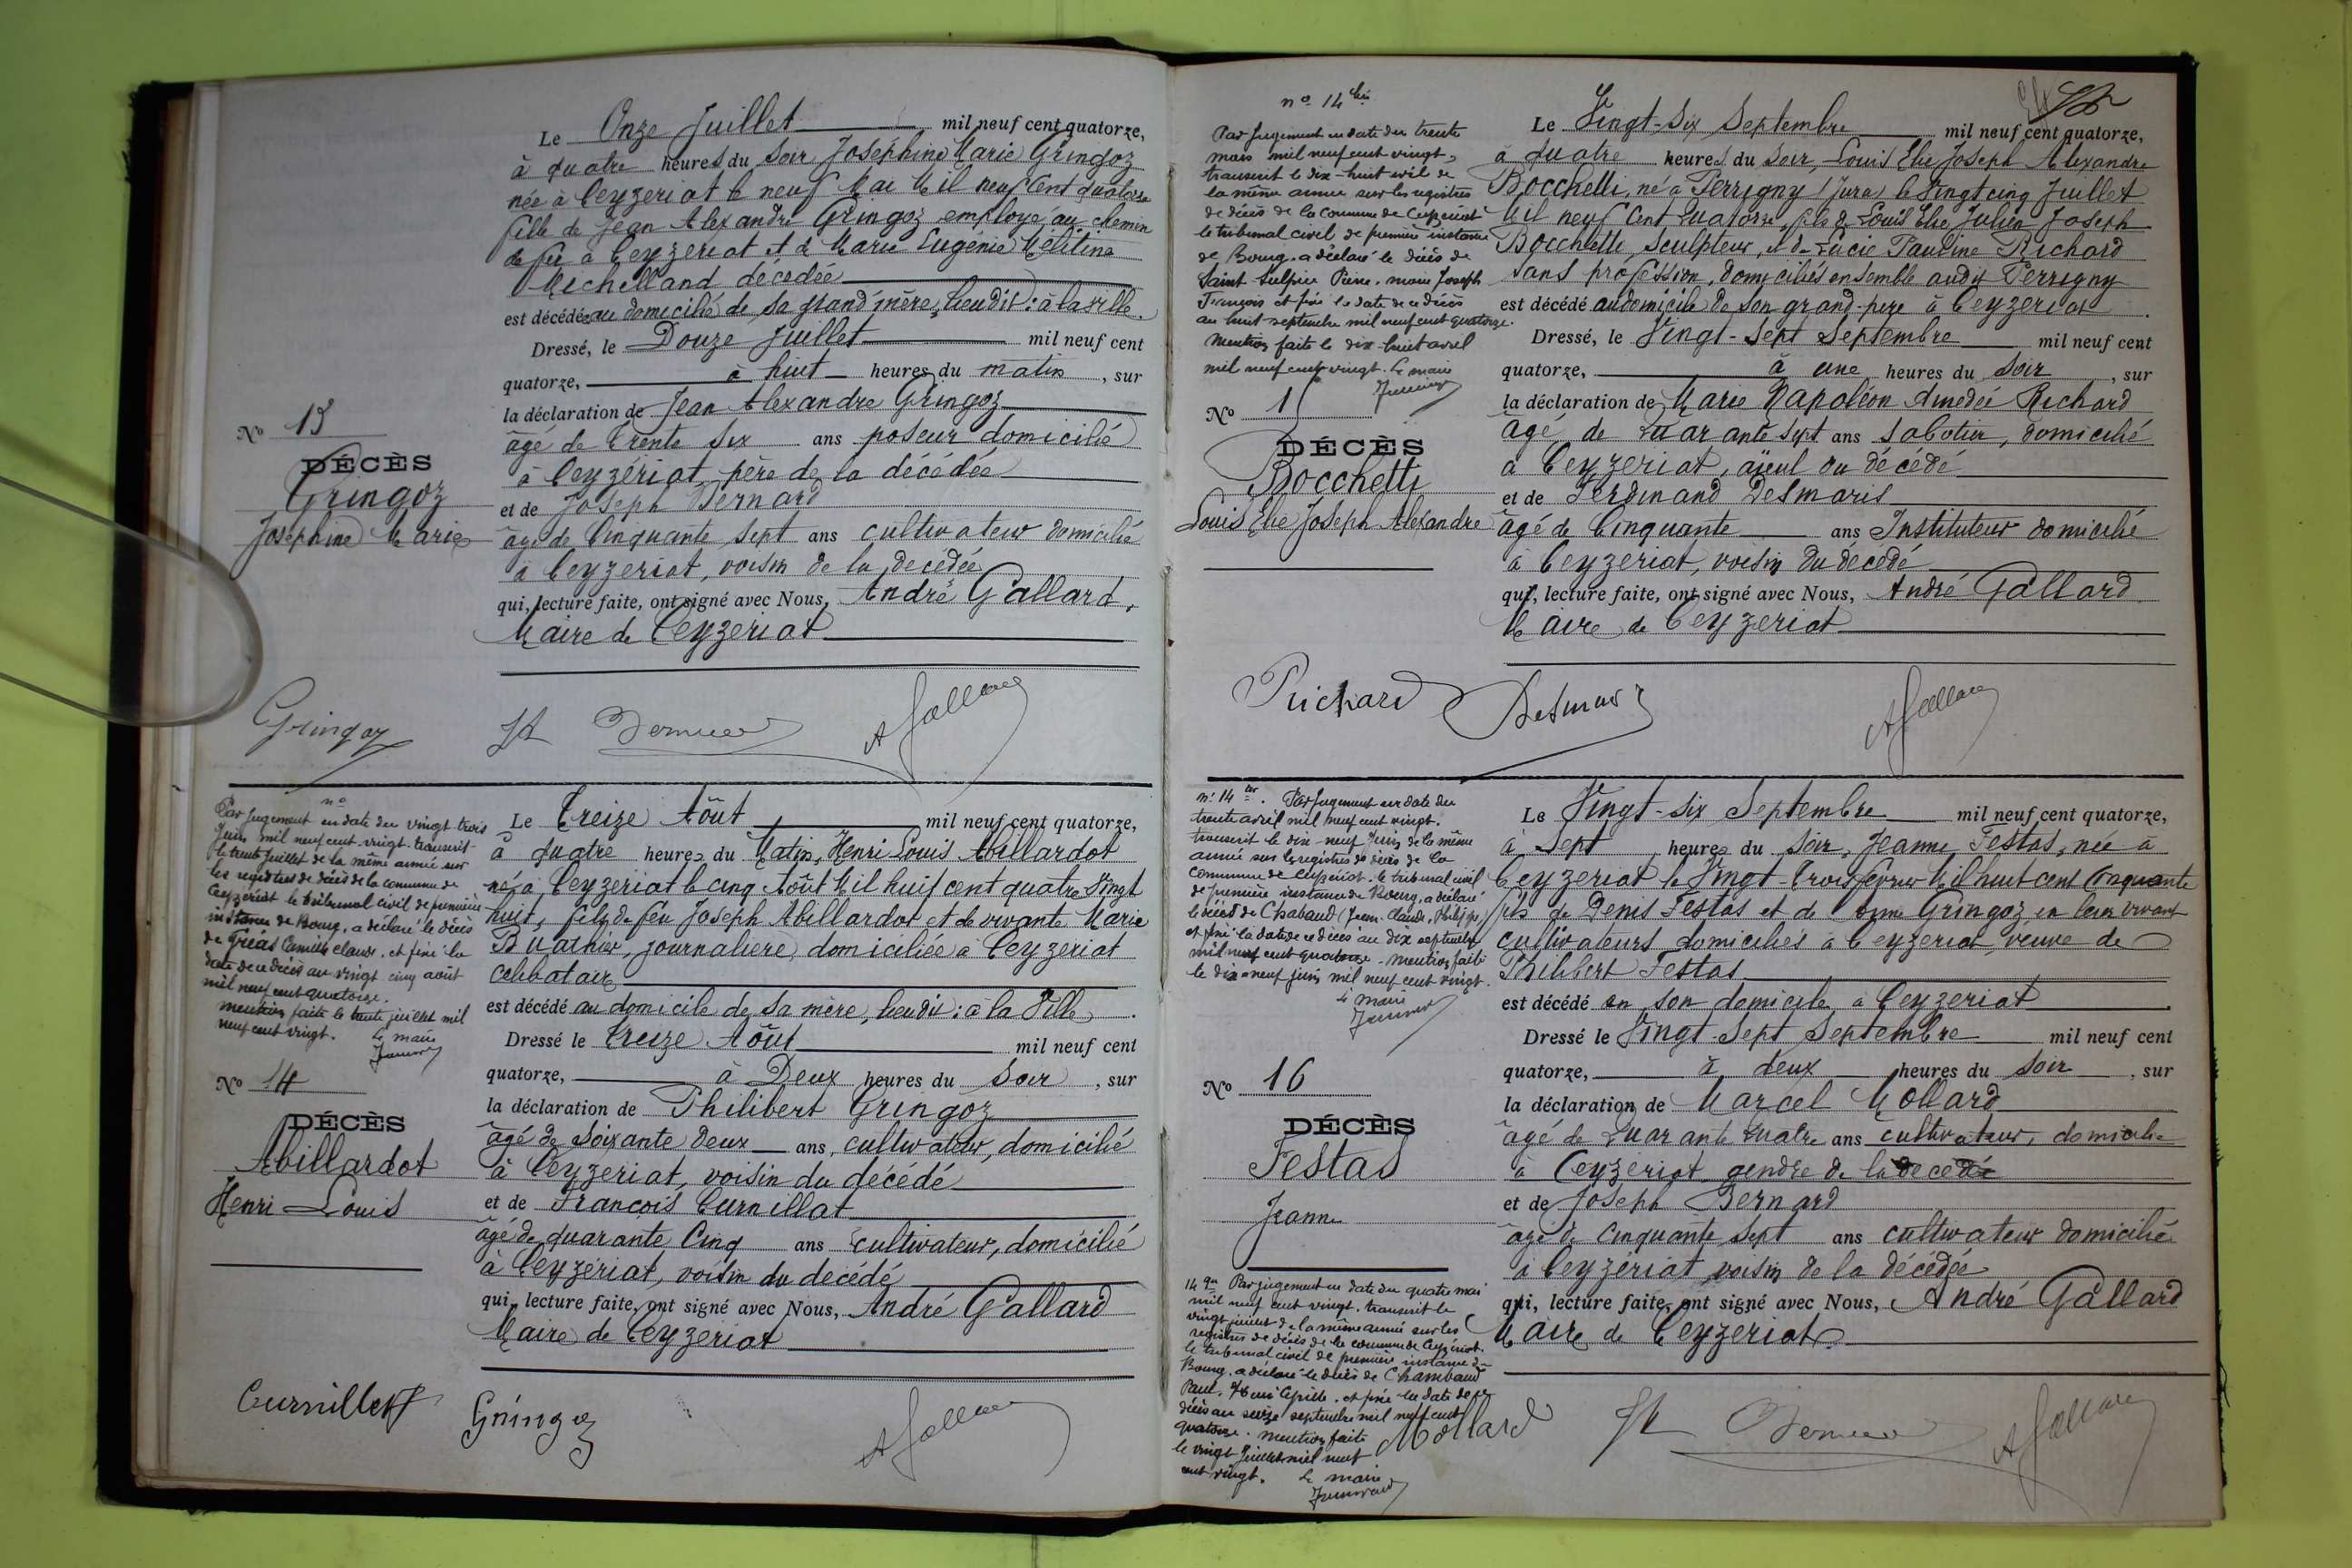 Le Onze Juillet mil neuf cent quatorze,
à quatre heures du soir Joséphine Marie Gringoz
née à Ceyzeriat le neuf Mai Mil neuf Cent quatorze
fille de Jean Alexandre Gringoz employé au chemin
de fer à Ceyzeriat et de Marie Eugénie Mélitine
Michelland décédée
est décédée au domicilie de sa grand'mère, lieudit: à la ville.
Dressé, le Douze Juillet mil neuf cent
quatorze, à huit heures du matin, sur
la déclaration de Jean Alexandre Gringoz
âgé de trente six ans poseur domicilié
à Ceyzériat, père de la décédée
et de Joseph Bernard
âgé de Cinquante sept ans cultivateur domicilié
à Ceyzeriat, voisin de la décédée
qui, lecture faite, ont signé avec Nous, André Gallard,
Maire de Ceyzeriat
No 13
DÉCÈS
Gringoz
Joséphine Marie
Gringoz
A Gallard
no
Par jugement en date du vingt trois
Juin mil neuf cent vingt. transcrit
le trente juillet de la même année sur
les registres de décès de la commune de
Ceyzériat le tribunal civil de première
instance de Bourg, a déclaré le décès
de Camille Claude. et fixé la
date de ce décès au vingt cinq août
mil neuf cent quatorze.
mention faite le trente juillet mil
neuf cent vingt. Le maire
No 14
DÉCÈS
Abillardot
Henri Louis
Le Treize Aôut mil neuf cent quatorze,
à quatre heures du Matin, Henri Louis Abillardot
né à Ceyzeriat le cinq Aôut Mil huit cent quatre Vingt
huit, fils de feu Joseph Abillardot et de vivante Marie
Buathier, journalière, domiciliée à Ceyzeriat
célibataire
est décédé au domicile de sa mère, lieudit: à la Ville.
Dressé le Treize Aôut mil neuf cent
quatorze, à Deux heures du Soir, sur
la déclaration de Philibert Gringoz
âgé de Soixante deux ans, cultivateur, domicilié
à Ceyzeriat, voisin du décédé
et de François Curnillat
âgé de quarante Cinq ans cultivateur, domicilié
à Ceyzériat, voisin du décédé
qui, lecture faite, ont signé avec Nous, André Gallard
Maire de Ceyzeriat
Curnillat Gringoz A Gallard
no 14 bis
Par jugement en date du trente
mars mil neuf cent vingt,
transcrit le dix-huit avril de
la même année sur les registres
de décès de la commune de Ceyzériat
le tribunal civil de première instance
de Bourg. a déclaré le décès de
Saint Sulpice Pierre. marie Joseph
François et fixé la date de ce décès
au huit septembre mil neuf cent quatorze.
Mention faite le dix-huit avril
mil neuf cent vingt. Le maire
No 15
DÉCÈS
Bocchetti
Louis Elie Joseph Alexandre
Le Vingt-Six Septembre mil neuf cent quatorze,
à quatre heures du Soir, Louis Elie Joseph Alexandre
Bocchelli, né à Perrigny (Jura) le Vingt cinq Juillet
Mil neuf Cent Quatorze, fils de Louis Elie Julien Joseph
Bocchetti, sculpteur, et de Lucie Pauline Richard
sans profession, domiciliés ensemble audit Perrigny
est décédé au domicile de son grand-père à Ceyzeriat.
Dressé, le Vingt-Sept Septembre mil neuf cent
quatorze, à une heures du Soir, sur
la déclaration de Marie Napoléon Amedée Richard
âgé de Quarante sept ans Sabotier, domicilié
à Ceyzeriat, aïeul du décédé
et de Ferdinand Desmaris
âgé de Cinquante ans Instituteur domicilié
à Ceyzeriat, voisin du décédé
qui, lecture faite, ont signé avec Nous, André Gallard
Maire de Ceyzeriat
Richard Desmaris A Gallard
no 14 ter. Par Jugement en date du
trente avril mil neuf cent vingt.
transcrit le dix-neuf Juin de la même
année sur les registres de décès de la
commune de Ceyzériat. le tribunal civil
de première instance de Bourg, a déclaré
le décès de Chabaud (Jean-Claude, Philippe)
et fixé la date de ce décès au dix septembre
mil neuf cent quatorze - mention faite
le dix-neuf juin mil neuf cent vingt.
Le maire
No 16
DÉCÈS
Festas
Jeanne
Le Vingt-Six Septembre mil neuf cent quatorze,
à Sept heures du soir, Jeanne Festas, née à
Ceyzeriat le Vingt-Trois février Mil huit cent Cinquante
fils de Denis Festas et de Gringoz en leur vivant
cultivateurs domiciliés à Ceyzeriat, veuve de
Philibert Festas
est décédé en son domicile, à Ceyzeriat.
Dressé le Vingt-Sept Septembre mil neuf cent
quatorze, à deux heures du Soir, sur
la déclaration de Marcel Mollard
âgé de Quarante Quatre ans cultivateur, domicilié
à Ceyzériat gendre de la décédée
et de Joseph Bernard
âgé de Cinquante sept ans cultivateur domicilié
à Ceyzériat, voisin de la décédée
qui, lecture faite, ont signé avec Nous, André Gallard
Maire de Ceyzeriat
14 qer Par jugement en date du quatre mai
mil neuf cent vingt. transcrit le
vingt juillet de la même année sur les
registres de décès de la commune de Ceyzériat.
le tribunal civil de première instance de
Bourg. a déclaré le décès de Chambaud
Paul. et fixé la date de ce
décès au seize septembre mil neuf cent
quatorze. mention faite
le vingt Juillet mil neuf
cent vingt. Le maire
Mollard A Gallard